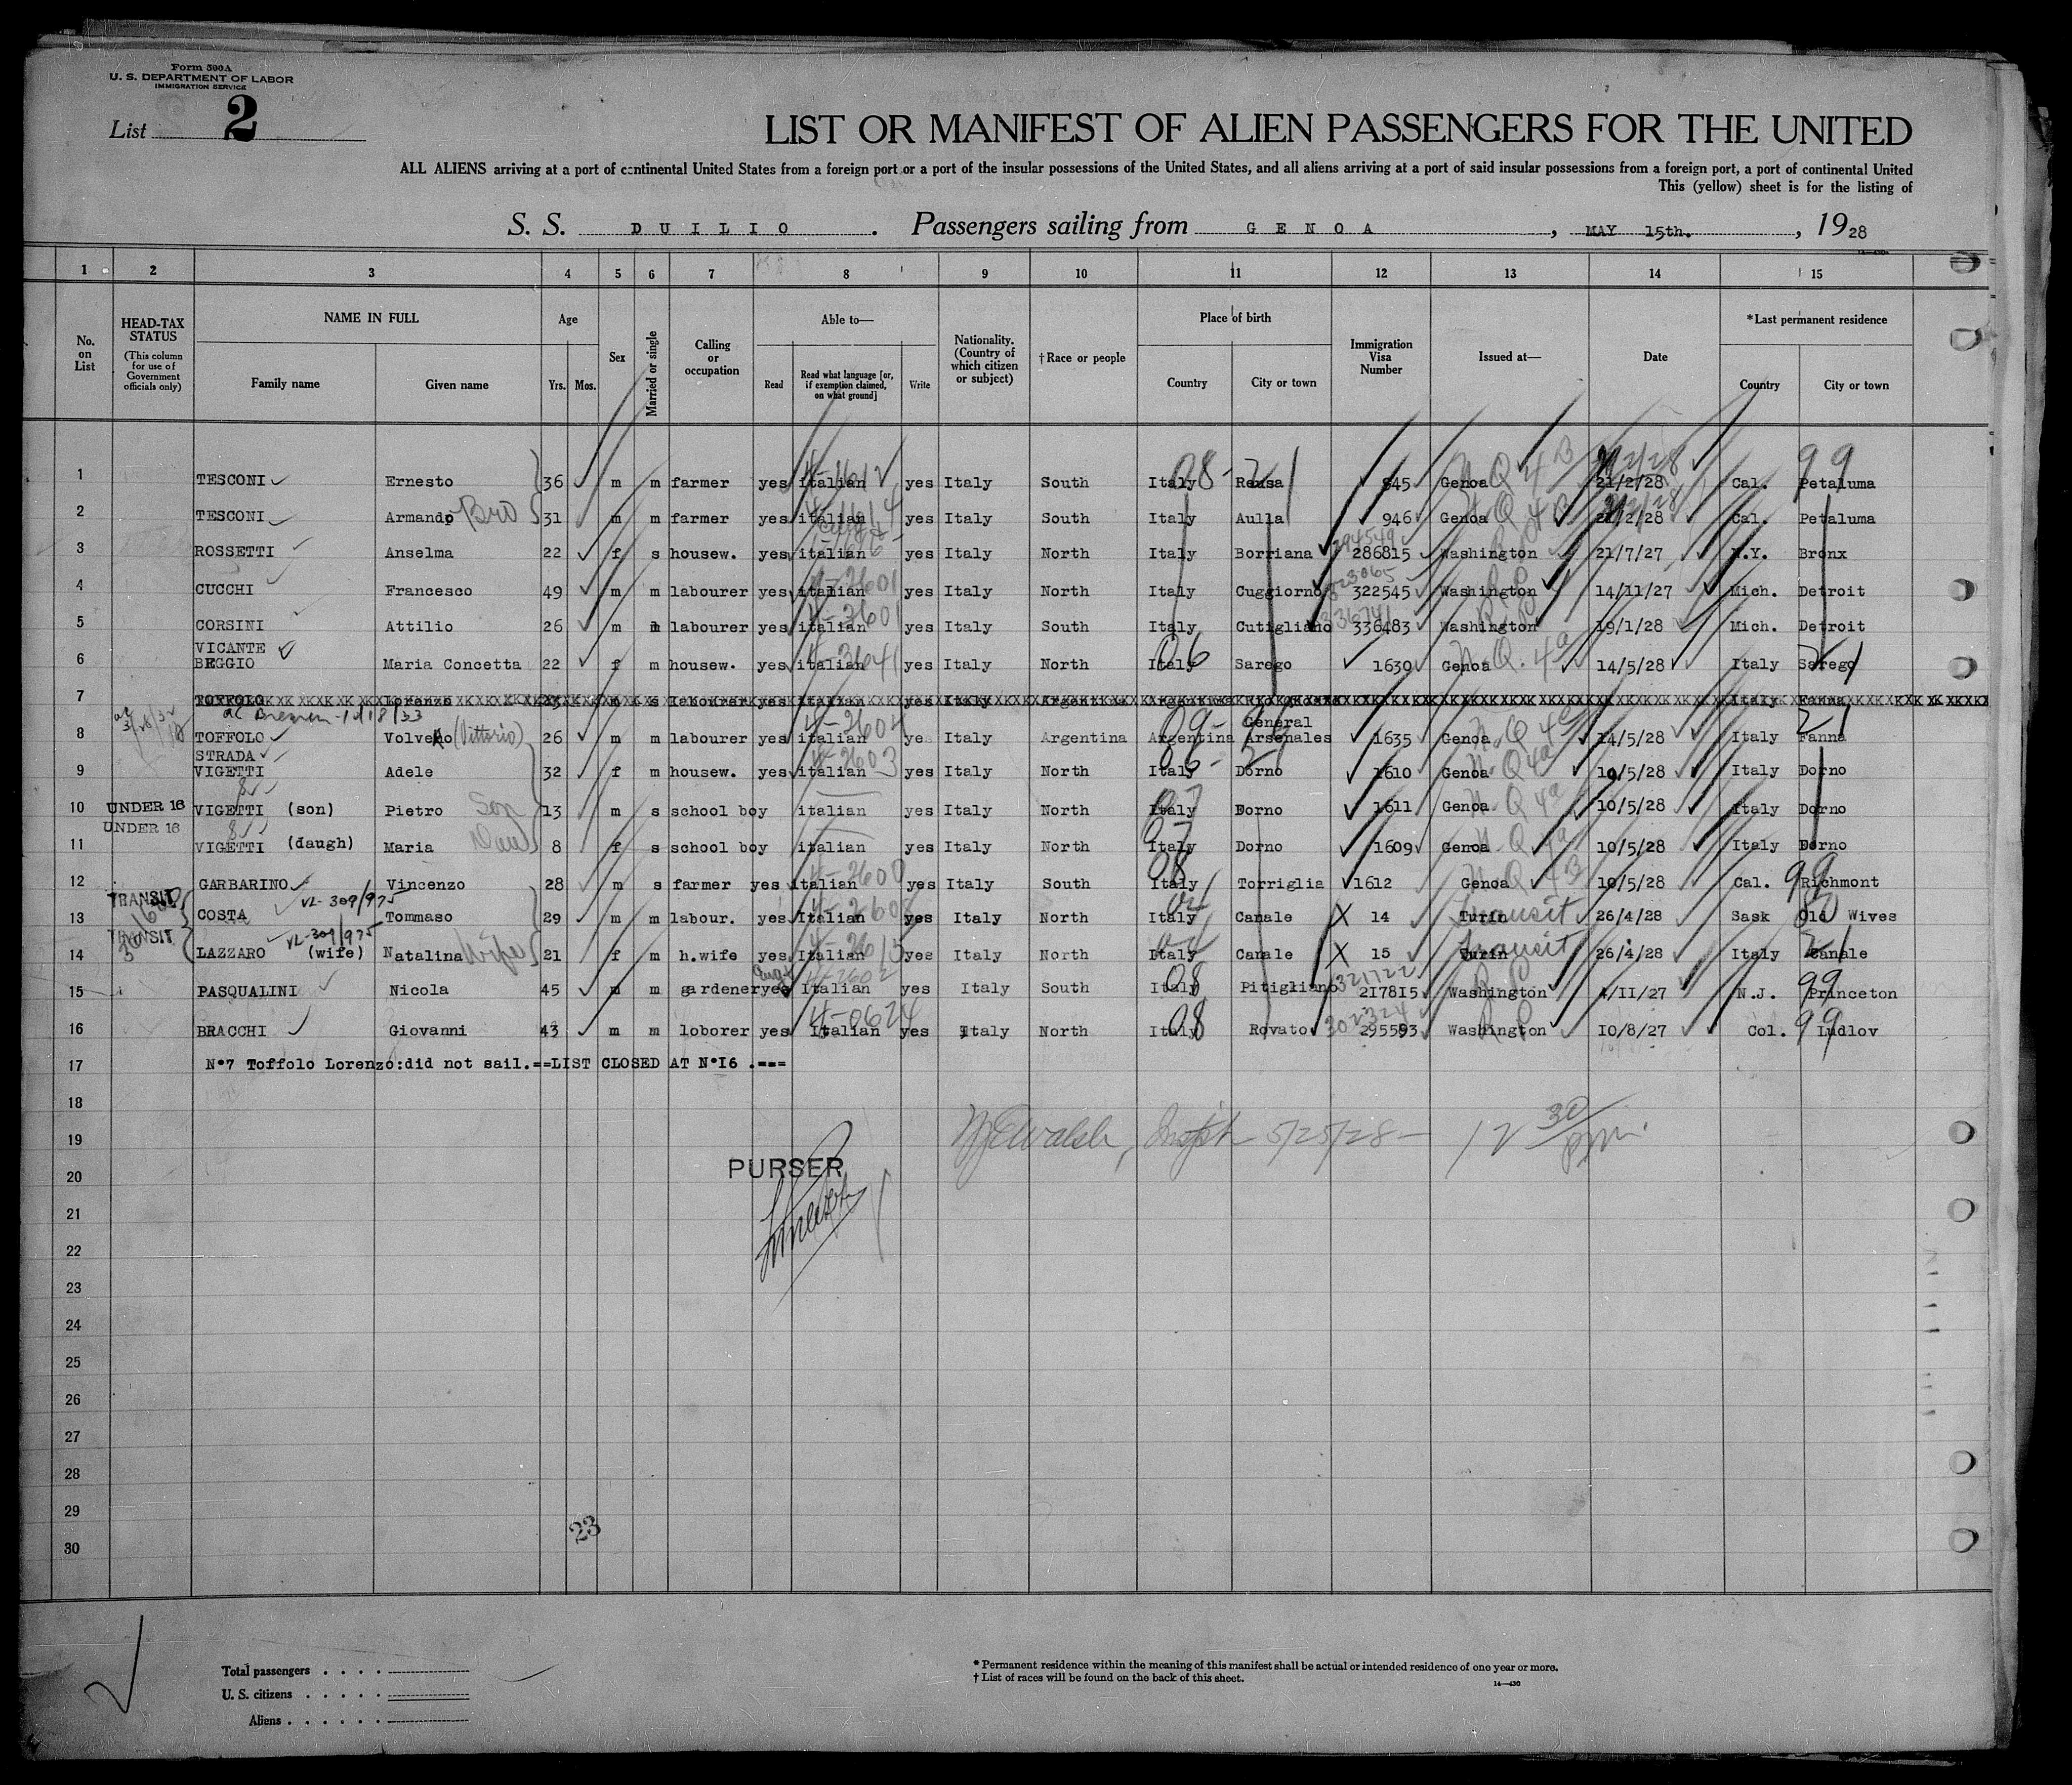 Form 500A
U. S. DEPARTMENT OF LABOR
IMMIGRATION SERVICE
List 2
LIST OR MANIFEST OF ALIEN PASSENGERS FOR THE UNITED
ALL ALIENS arriving at a port of continental United States from a foreign port or a port of the insular possessions of the United States, and all aliens arriving at a port of said insular possessions from a foreign port, a port of continental United
This (yellow) sheet is for the listing of
S. S. DUILIO . Passengers sailing from GENOA , MAY 15th. , 1928
1 2 3 4 5 6 7 8 9 10 11 12 13 14 15
No. on List
HEAD-TAX STATUS (This column for use of Government officials only)
NAME IN FULL
Family name Given name
Age
Yrs. Mos.
Sex
Married or single
Calling or occupation
Able to—
Read Read what language [or, if exemption claimed, on what ground] Write
Nationality. (Country of which citizen or subject)
†Race or people
Place of birth
Country City or town
Immigration Visa Number
Issued at—
Date
*Last permanent residence
Country City or town
1 TESCONI Ernesto 36 m m farmer yes italian yes Italy South Italy Reusa 945 Genoa 21/2/28 Cal. Petaluma
2 TESCONI Armando Bro 31 m m farmer yes italian yes Italy South Italy Aulla 946 Genoa 21/2/28 Cal. Petaluma
3 ROSSETTI Anselma 22 f s housew. yes italian yes Italy North Italy Borriana 286815 Washington 21/7/27 N.Y. Bronx
4 CUCCHI Francesco 49 m m labourer yes italian yes Italy North Italy Cuggiorno 322545 Washington 14/11/27 Mich. Detroit
5 CORSINI Attilio 26 m m labourer yes italian yes Italy South Italy Cutigliano 336483 Washington 19/1/28 Mich. Detroit
6 VICANTE BEGGIO Maria Concetta 22 f m housew. yes italian yes Italy North Italy Sarego 1630 Genoa 14/5/28 Italy Sarego
7 TOFFOLO Lorenzo m s labourer yes italian yes Italy Argentina Argentina Italy Fanna
8 TOFFOLO Volveno (Vittorio) 26 m m labourer yes italian yes Italy Argentina Argentina General Arsenales 1635 Genoa 14/5/28 Italy Fanna
9 STRADA VIGETTI Adele 32 f m housew. yes italian yes Italy North Italy Dorno 1610 Genoa 10/5/28 Italy Dorno
10 UNDER 16 VIGETTI (son) Pietro Son 13 m s school boy italian yes Italy North Italy Dorno 1611 Genoa 10/5/28 Italy Dorno
UNDER 16
11 VIGETTI (daugh) Maria Dau 8 f s school boy italian yes Italy North Italy Dorno 1609 Genoa 10/5/28 Italy Dorno
12 GARBARINO Vincenzo 28 m s farmer yes italian yes Italy South Italy Torriglia 1612 Genoa 10/5/28 Cal. Richmont
TRANSIT VL-309/975
13 COSTA Tommaso 29 m m labour. yes Italian yes Italy North Italy Canale 14 Turin Transit 26/4/28 Sask Old Wives
TRANSIT VL-309/975
14 LAZZARO (wife) Natalina Wife 21 f m h.wife yes Italian yes Italy North Italy Canale 15 Turin Transit 26/4/28 Italy Canale
15 PASQUALINI Nicola 45 m m gardener yes Italian yes Italy South Italy Pitigliano 217815 Washington 4/11/27 N.J. Princeton
16 BRACCHI Giovanni 43 m m loborer yes Italian yes Italy North Italy Rovato 295593 Washington 10/8/27 Col. Ludlov
17 N°7 Toffolo Lorenzo:did not sail.==LIST CLOSED AT N°I6 .===
18
19 5/25/28 — 12 30 pm.
20 PURSER
21
22
23
24
25
26
27
28
29
23
30
Total passengers . . . .
U. S. citizens . . . . .
Aliens . . . . . .
* Permanent residence within the meaning of this manifest shall be actual or intended residence of one year or more.
† List of races will be found on the back of this sheet.
14—430